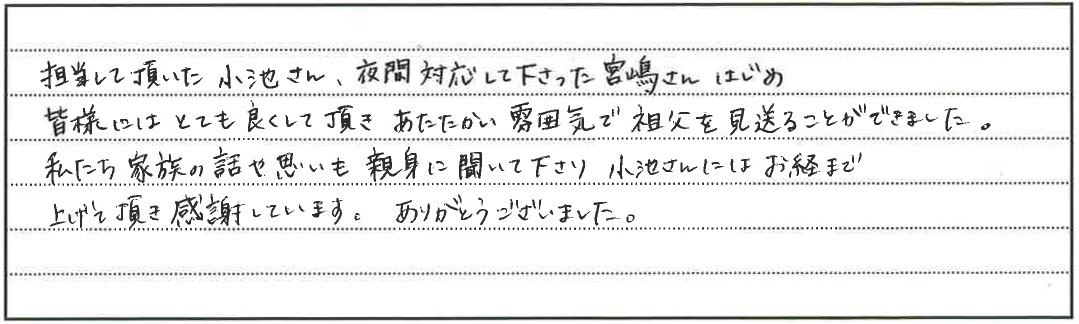 担当して頂いた 小池さん、夜間対応して下さった宮嶋さん はじめ
皆様には とても良くして頂き あたたかい 雰囲気で 祖父を見送ることができました。
私たち家族の話や思いも 親身に聞いて下さり 小池さんには お経まで
上げて頂き感謝しています。 ありがとうございました。